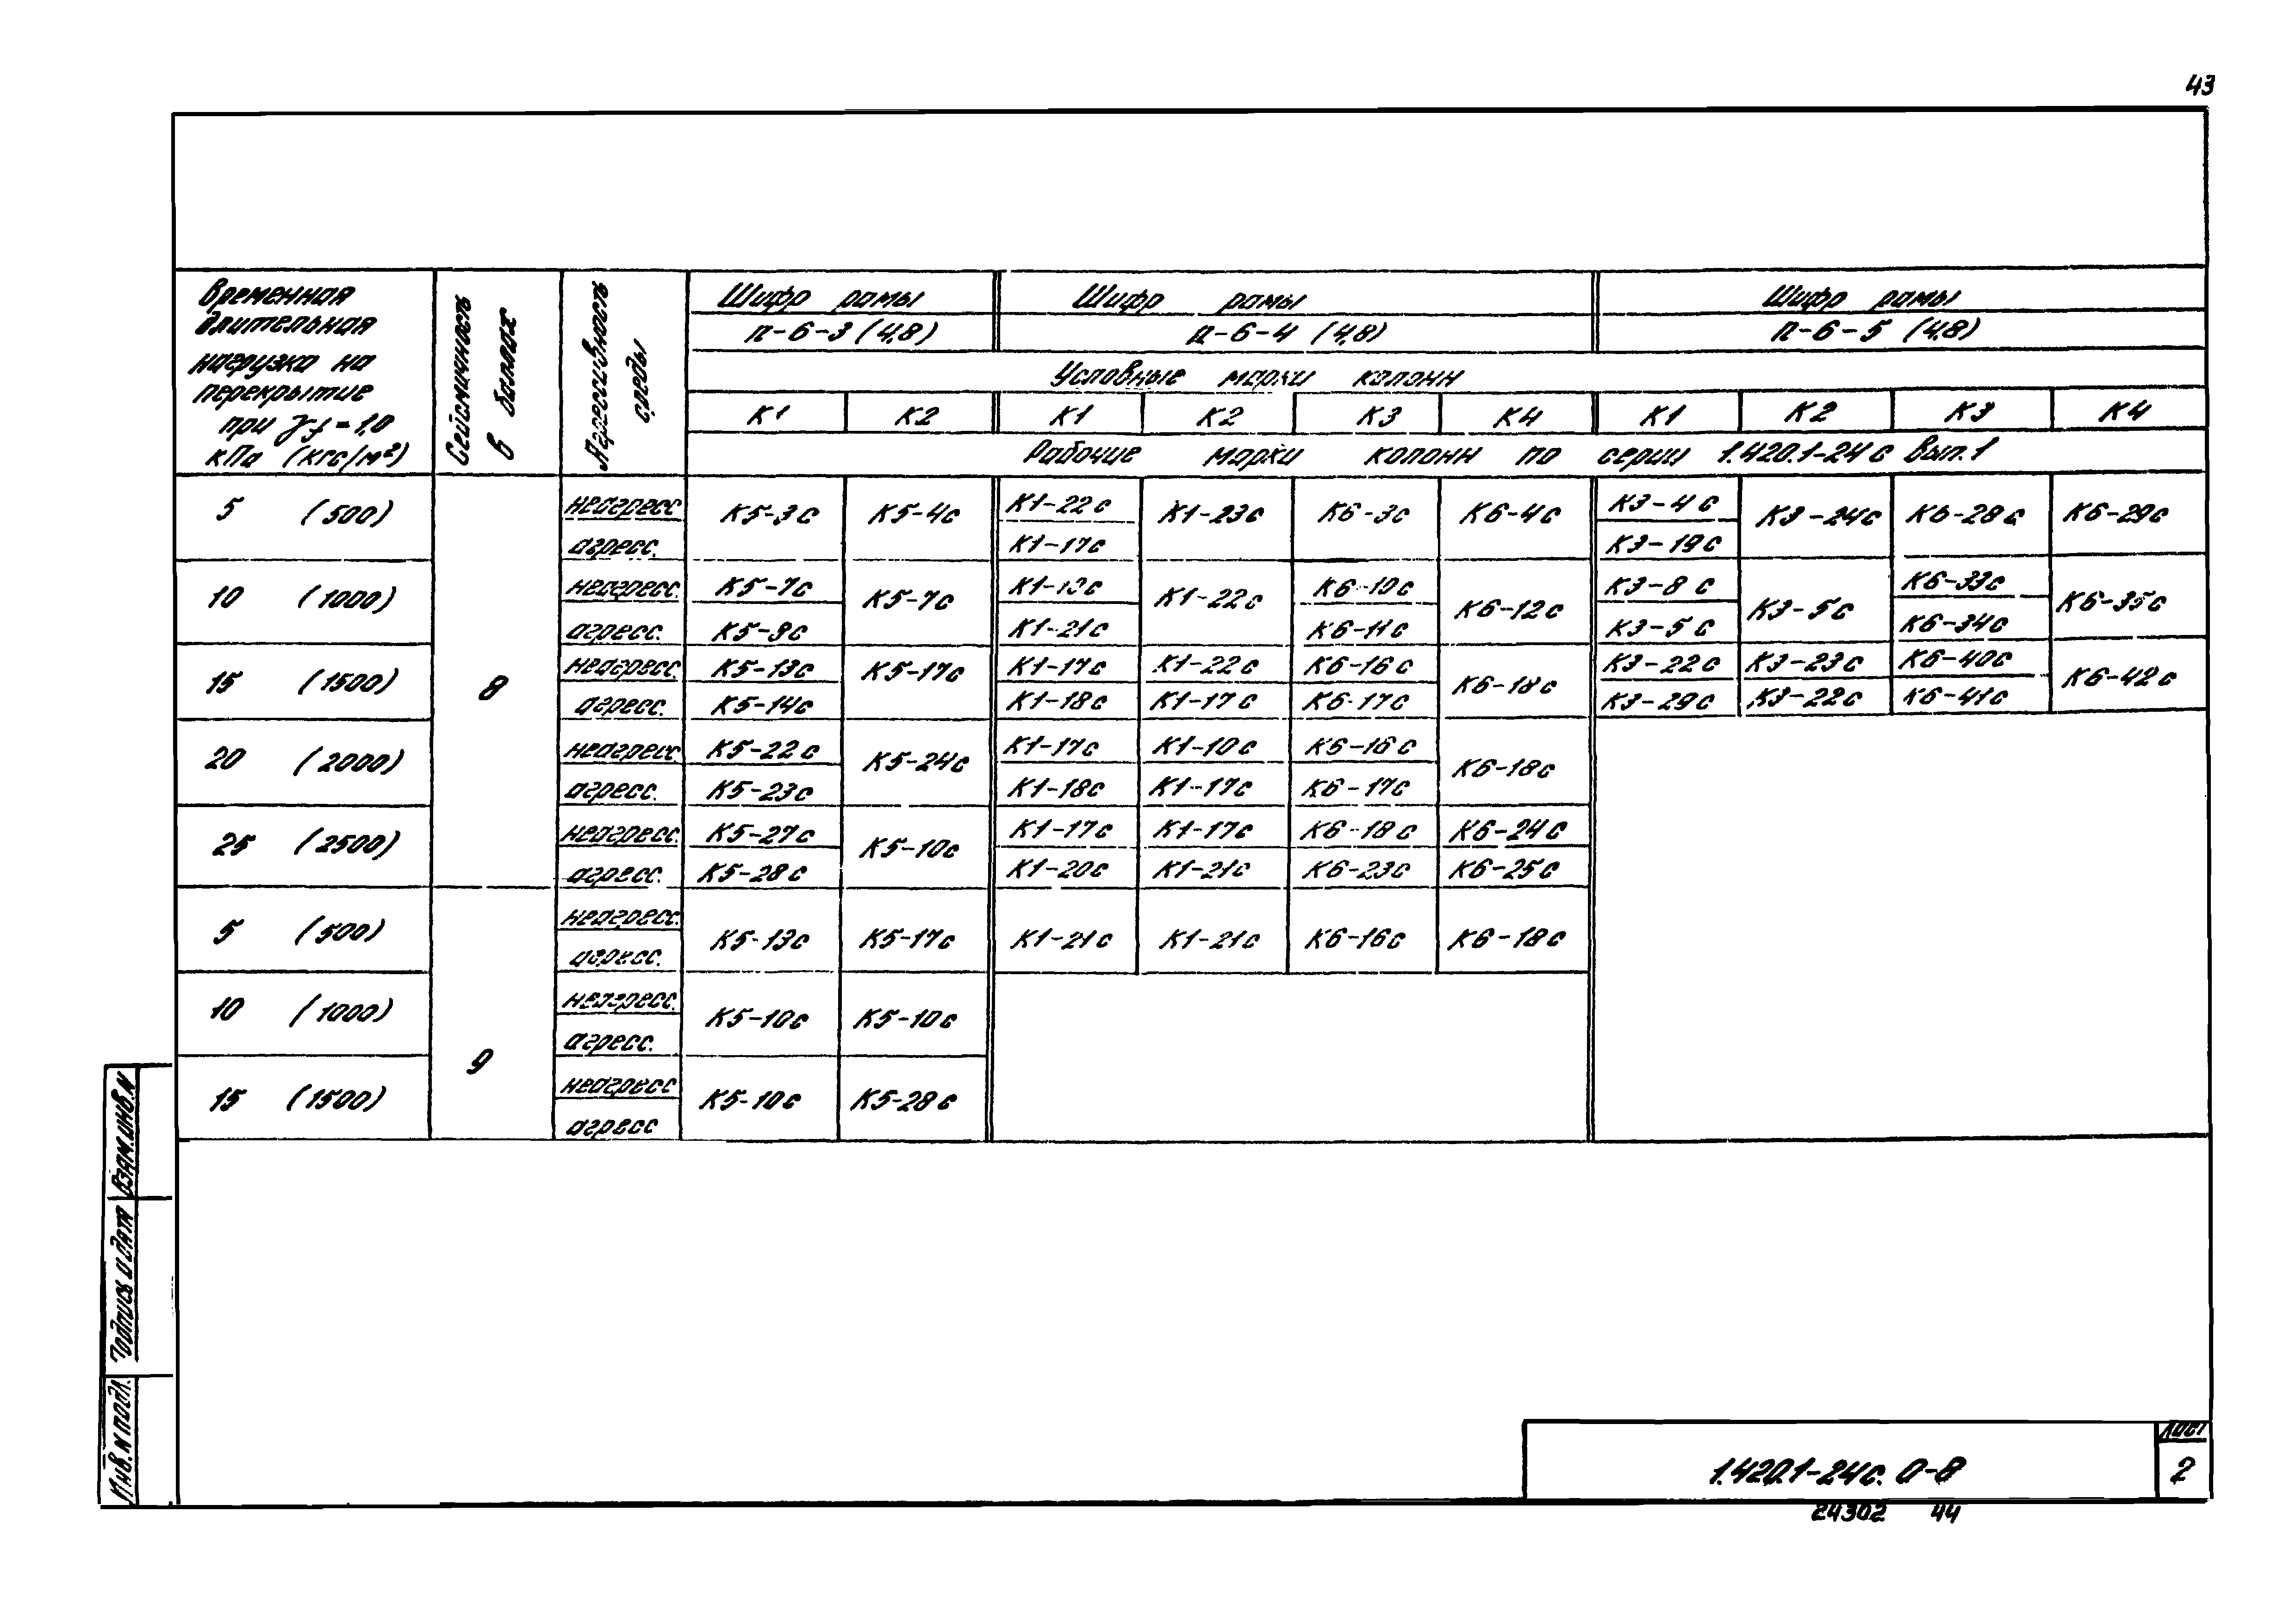 43
Временная
длительная
нагрузка на
перекрытие
при γf = 1,0
кПа (кгс/м²)
Сейсмичность
в баллах
Агрессивность
среды
Шифр рамы
п-6-3 (4,8)
Шифр рамы
п-6-4 (4,8)
Шифр рамы
п-6-5 (4,8)
Условные марки колонн
К1 К2 К1 К2 К3 К4 К1 К2 К3 К4
Рабочие марки колонн по серии 1.420.1-24с Вып.1
5 (500) 8 неагресс. К5-3с К5-4с К1-22с К1-23с К6-3с К6-4с К3-4с К3-24с К6-28с К6-29с
агресс. К1-17с К3-19с
10 (1000) неагресс. К5-7с К5-7с К1-22с К6-10с К6-12с К3-8с К3-5с К6-33с К6-35с
агресс. К1-21с К6-11с К3-5с К6-34с
15 (1500) неагресс. К5-13с К5-17с К1-17с К1-22с К6-16с К6-18с К3-22с К3-23с К6-40с К6-42с
агресс. К5-14с К1-18с К1-17с К6-17с К3-29с К3-22с К6-41с
20 (2000) неагресс К5-22с К5-24с К1-17с К1-10с К6-16с К6-18с
агресс. К5-23с К1-18с К1-17с К6-17с
25 (2500) неагресс. К5-27с К5-10с К1-17с К1-17с К6-18с К6-24с
агресс. К5-28с К1-20с К1-21с К6-23с К6-25с
5 (500) 9 неагресс. К5-13с К5-17с К1-21с К1-21с К6-16с К6-18с
агресс.
10 (1000) неагресс. К5-10с К5-10с
агресс.
15 (1500) неагресс К5-10с К5-28с
агресс
Взам.инв.N
Подпись и дата
Инв.N подл.
1.420.1-24с. 0-8
Лист
2
24302 44